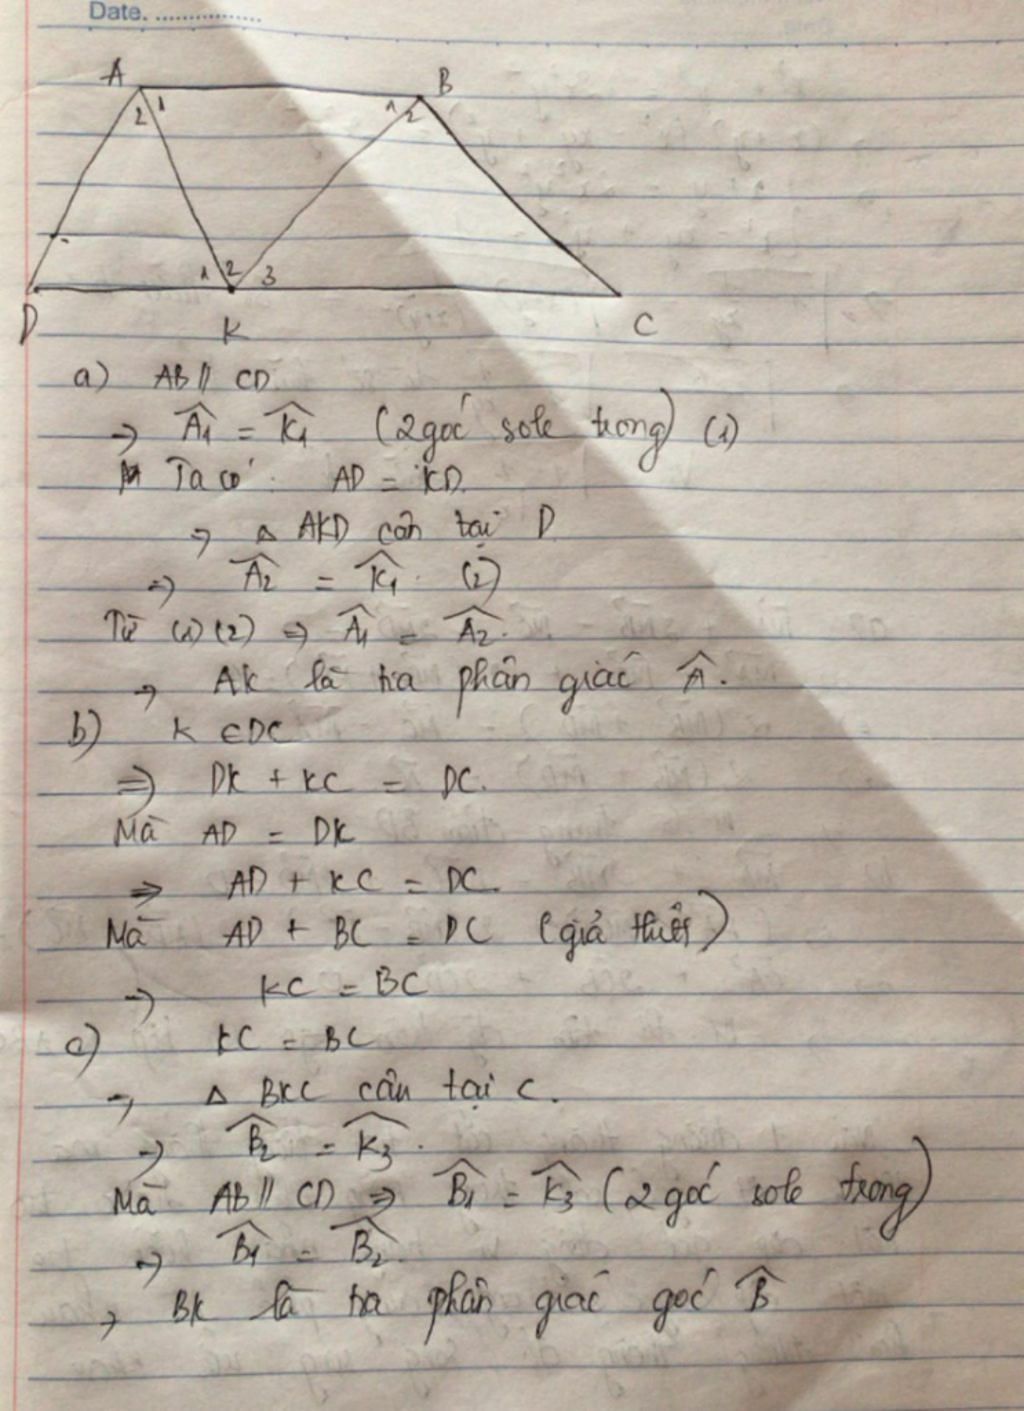 Date. ................
A
B
2 1
1 2
1 2 3
D
K
C
a) AB // CD
⇒ Â1 = K̂1 (2 góc sole trong) (1)
Ta có: AD = KD
⇒ △ AKD cân tại D
⇒ Â2 = K̂1 (2)
Từ (1) (2) ⇒ Â1 = Â2.
⇒ AK là tia phân giác Â.
b) K ∈ DC
⇒ DK + KC = DC.
Mà AD = DK
⇒ AD + KC = DC.
Mà AD + BC = DC (giả thiết)
⇒ KC = BC
c) KC = BC
⇒ △ BKC cân tại C.
⇒ B̂2 = K̂3.
Mà AB // CD ⇒ B̂1 = K̂3 (2 góc sole trong)
⇒ B̂1 = B̂2.
⇒ BK là tia phân giác góc B̂